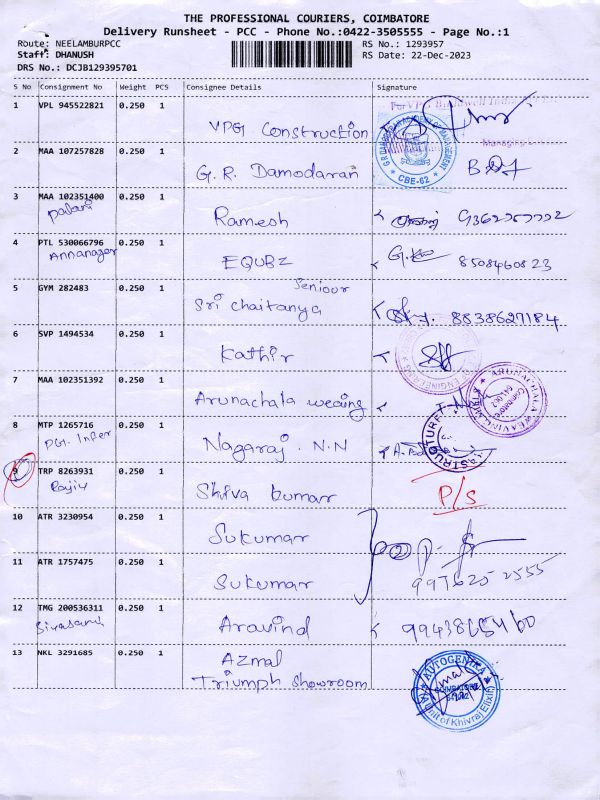 THE PROFESSIONAL COURIERS, COIMBATORE
Delivery Runsheet - PCC - Phone No.:0422-3505555 - Page No.:1
Route: NEELAMBURPCC RS No.: 1293957
Staff: DHANUSH RS Date: 22-Dec-2023
DRS No.: DCJB129395701
S No Consignment No Weight PCS Consignee Details Signature
1 VPL 945522821 0.250 1 VPG Construction
G.R. DAMODARAN ACADEMY OF MANAGEMENT
CBE-62
Managing
2 MAA 107257828 0.250 1 G. R. Damodaran
3 MAA 102351400 0.250 1 Ramesh
Palani
4 PTL 530066796 0.250 1 EQUBZ 8508460823
Annanager
5 GYM 282483 0.250 1 Sri Chaitanya Seniour 8838627184
6 SVP 1494534 0.250 1 Kathir
7 MAA 102351392 0.250 1 Arunachala
ARUNACHALA WEAVING MILLS
Coimbatore
8 MTP 1265716 0.250 1 Nagaraj . N.N
9 TRP 8263931 0.250 1 Shiva kumar P/S
Rajiv
10 ATR 3230954 0.250 1 Sukumar
11 ATR 1757475 0.250 1 Sukumar
12 TMG 200536311 0.250 1 Aravind
13 NKL 3291685 0.250 1 Azmal
Triumph showroom
AUTOGENIKA
(Unit of Khivraj Elixir)